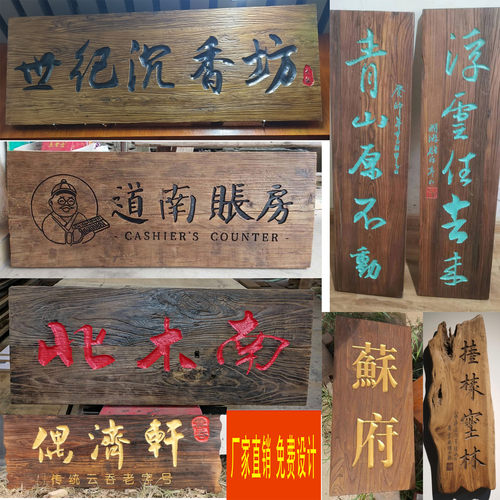 世纪沉香坊
道南賬房
- CASHIER'S COUNTER -
北木南
偶濟軒
传统云吞老字号
厂家直销 免费设计
浮雲任去来
青山原不動
蘇府